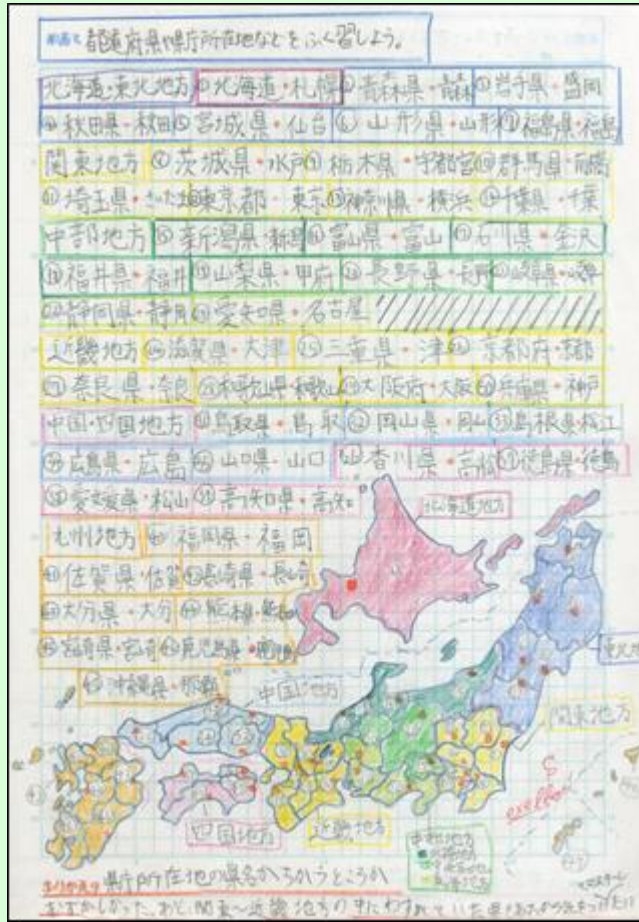 都道府県や県庁所在地などをふく習しよう。
北海道・東北地方 ①北海道・札幌 ②青森県・青森 ③岩手県・盛岡
④秋田県・秋田 ⑤宮城県・仙台 ⑥山形県・山形 ⑦福島県・福島
関東地方 ⑧茨城県・水戸 ⑨栃木県・宇都宮 ⑩群馬県・前橋
⑪埼玉県・さいたま ⑫東京都・東京 ⑬神奈川県・横浜 ⑭千葉県・千葉
中部地方 ⑮新潟県・新潟 ⑯富山県・富山 ⑰石川県・金沢
⑱福井県・福井 ⑲山梨県・甲府 ⑳長野県・長野 ㉑岐阜県・岐阜
㉒静岡県・静岡 ㉓愛知県・名古屋
近畿地方 ㉔滋賀県・大津 ㉕三重県・津 ㉖京都府・京都
㉗奈良県・奈良 ㉘和歌山県・和歌山 ㉙大阪府・大阪 ㉚兵庫県・神戸
中国・四国地方 ㉛鳥取県・鳥取 ㉜岡山県・岡山 ㉝島根県・松江
㉞広島県・広島 ㉟山口県・山口 ㊱香川県・高松 ㊲徳島県・徳島
㊳愛媛県・松山 ㊴高知県・高知
北海道地方
九州地方 ㊵福岡県・福岡
㊶佐賀県・佐賀 ㊷長崎県・長崎
㊸大分県・大分 ㊹熊本県・熊本
㊺宮崎県・宮崎 ㊻鹿児島県・鹿児島
㊼沖縄県・那覇
中国地方
関東地方
四国地方
近畿地方
中部地方
県庁所在地の県名がちがうところが
むずかしかった。あと、関東〜近畿地方の中にわすれていた県